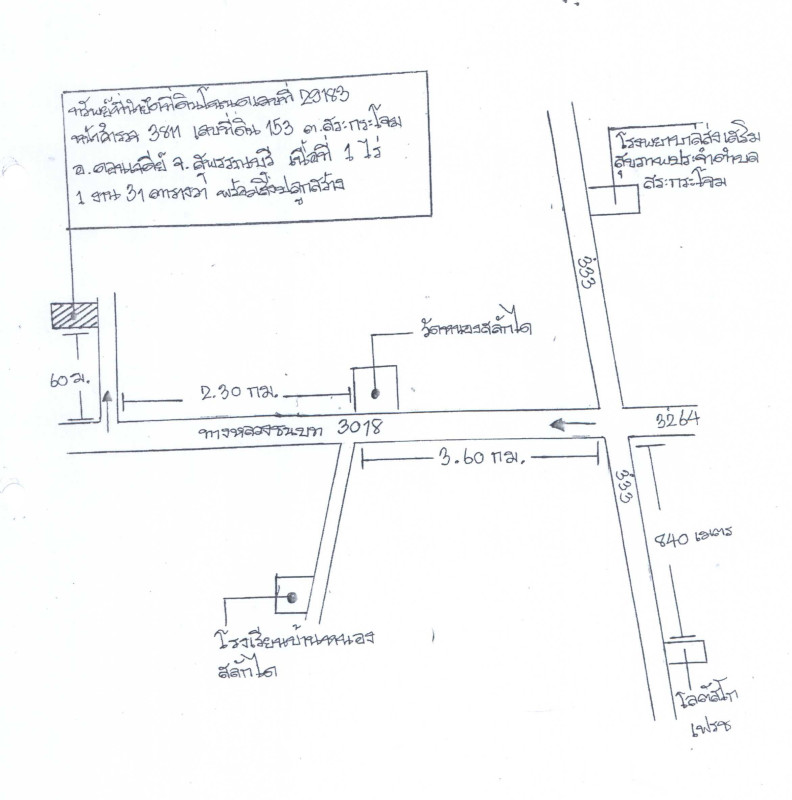 ทรัพย์ที่ยึดที่ดินโฉนดเลขที่ 29183
หน้าสำรวจ 3811 เลขที่ดิน 153 ต.สระกระโจม
อ.ดอนเจดีย์ จ.สุพรรณบุรี เนื้อที่ 1 ไร่
1 งาน 31 ตารางวา พร้อมสิ่งปลูกสร้าง
โรงพยาบาลส่งเสริม
สุขภาพประจำตำบล
สระกระโจม
333
วัดหนองสลักได
60 ม.
2.30 กม.
ทางหลวงชนบท 3018
3264
3.60 กม.
333
840 เมตร
โรงเรียนบ้านหนอง
สลักได
โลตัสโก
เฟรช